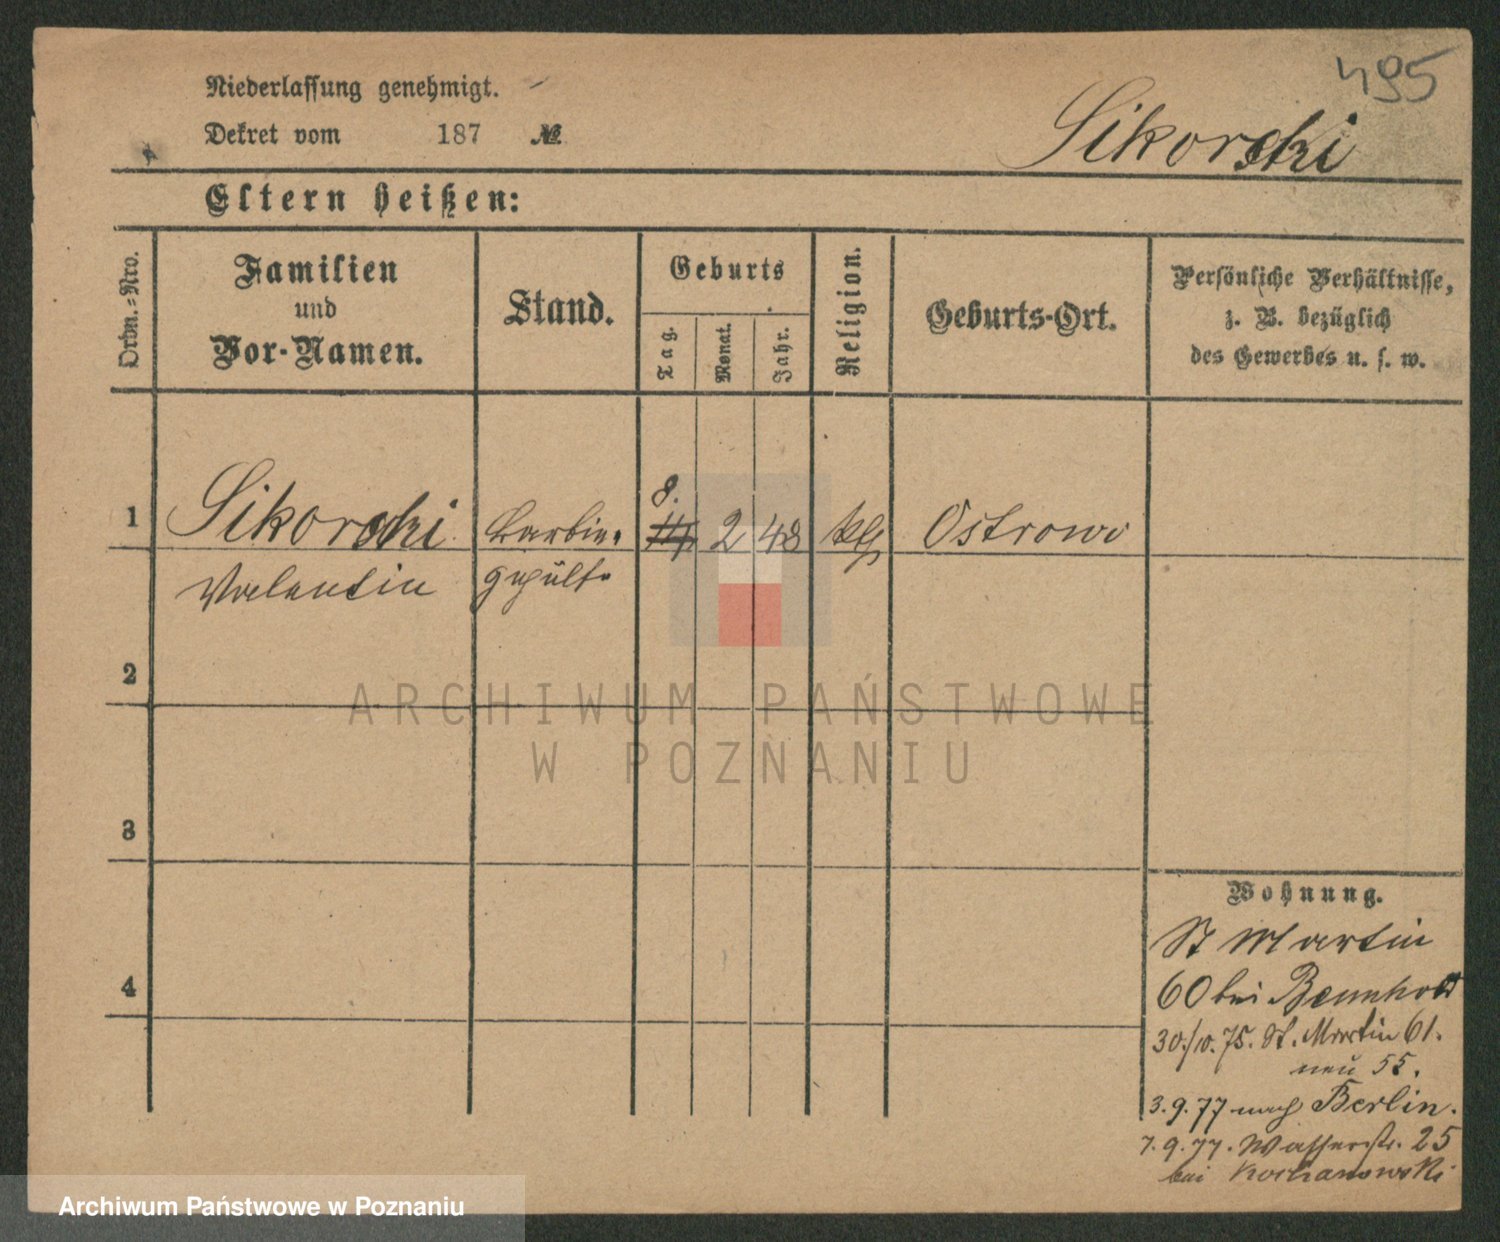 495
Niederlassung genehmigt.
Dekret vom 187 №
Sikorski
Eltern heißen:
Ordn.-Nro.
Familien
und
Vor-Namen.
Stand.
Geburts
Tag.
Monat.
Jahr.
Religion.
Geburts-Ort.
Persönliche Verhältnisse,
z. B. bezüglich
des Gewerbes u. s. w.
8.
1 Sikorski Barbier- 2 48 Ostrowo
Valentin gehülfe
2
3
4
Wohnung.
St Martin
60 bei Bennhold
30./10. 75. St. Martin 61.
neu 55.
3. 9. 77 nach Berlin.
7. 9. 77. Wasserstr. 25
bei Kochanowski
ARCHIWUM PAŃSTWOWE
W POZNANIU
Archiwum Państwowe w Poznaniu